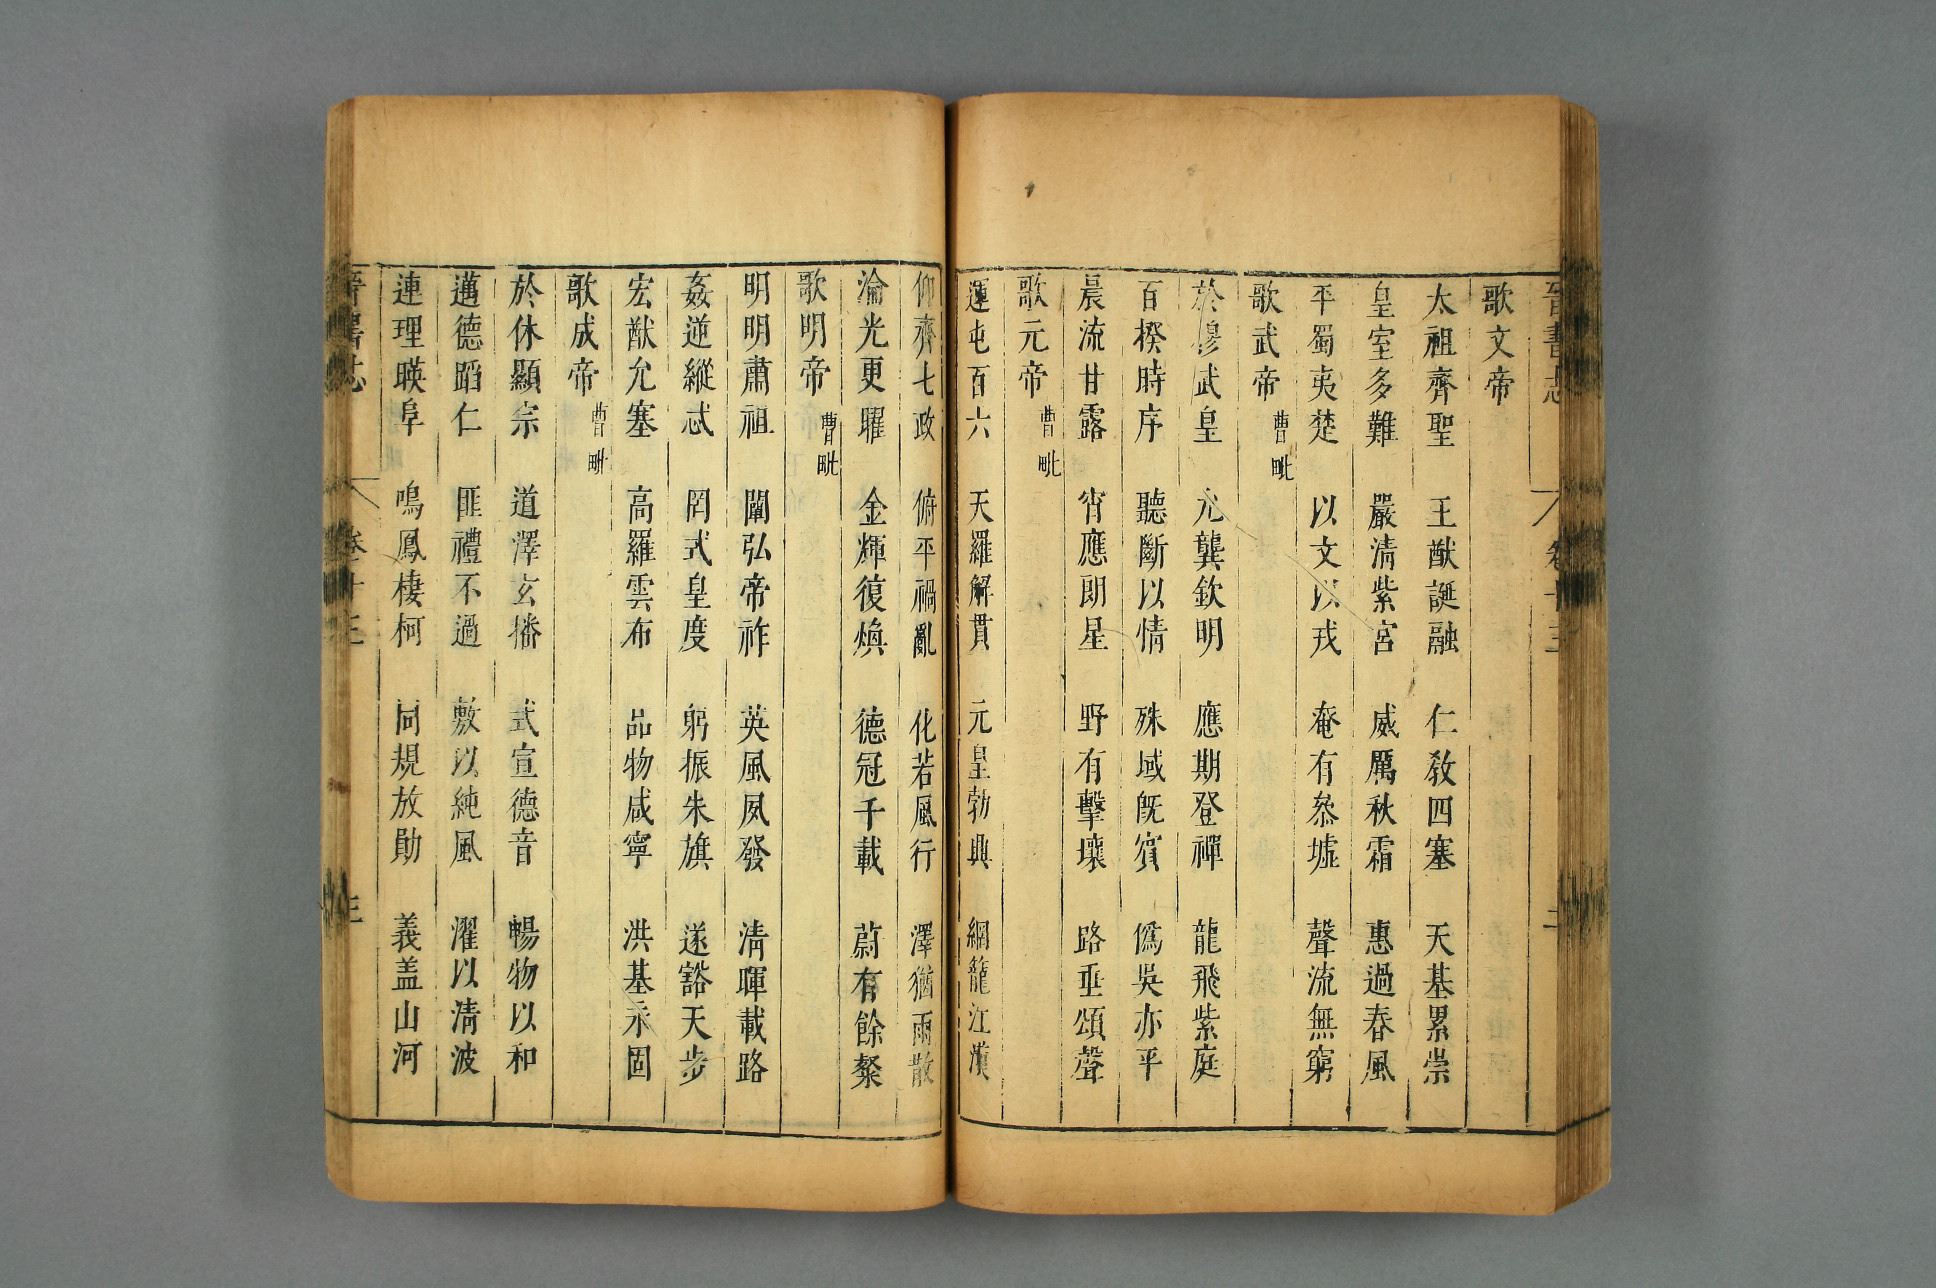 晉書志 卷十三 二
歌文帝
太祖齊聖 王猷誕融 仁教四塞 天基累崇
皇室多難 嚴清紫宮 威厲秋霜 惠過春風
平蜀夷楚 以文以戎 奄有叅墟 聲流無窮
歌武帝 曹毗
於穆武皇 允龔欽明 應期登禪 龍飛紫庭
百揆時序 聽斷以情 殊域旣賓 僞吳亦平
晨流甘露 宵應朗星 野有擊壤 路垂頌聲
歌元帝 曹毗
運屯百六 天羅解貫 元皇勃興 網籠江漢
仰齊七政 俯平禍亂 化若風行 澤猶雨散
淪光更曜 金輝復煥 德冠千載 蔚有餘粲
歌明帝 曹毗
明明肅祖 闡弘帝祚 英風夙發 清暉載路
姦逆縱忒 罔式皇度 躬振朱旗 遂豁天步
宏猷允塞 高羅雲布 品物咸寧 洪基永固
歌成帝 曹毗
於休顯宗 道澤玄播 式宣德音 暢物以和
邁德蹈仁 匪禮不過 敷以純風 濯以清波
連理暎阜 鳴鳳棲柯 同規放勛 義盖山河
晉書志 卷十三 三